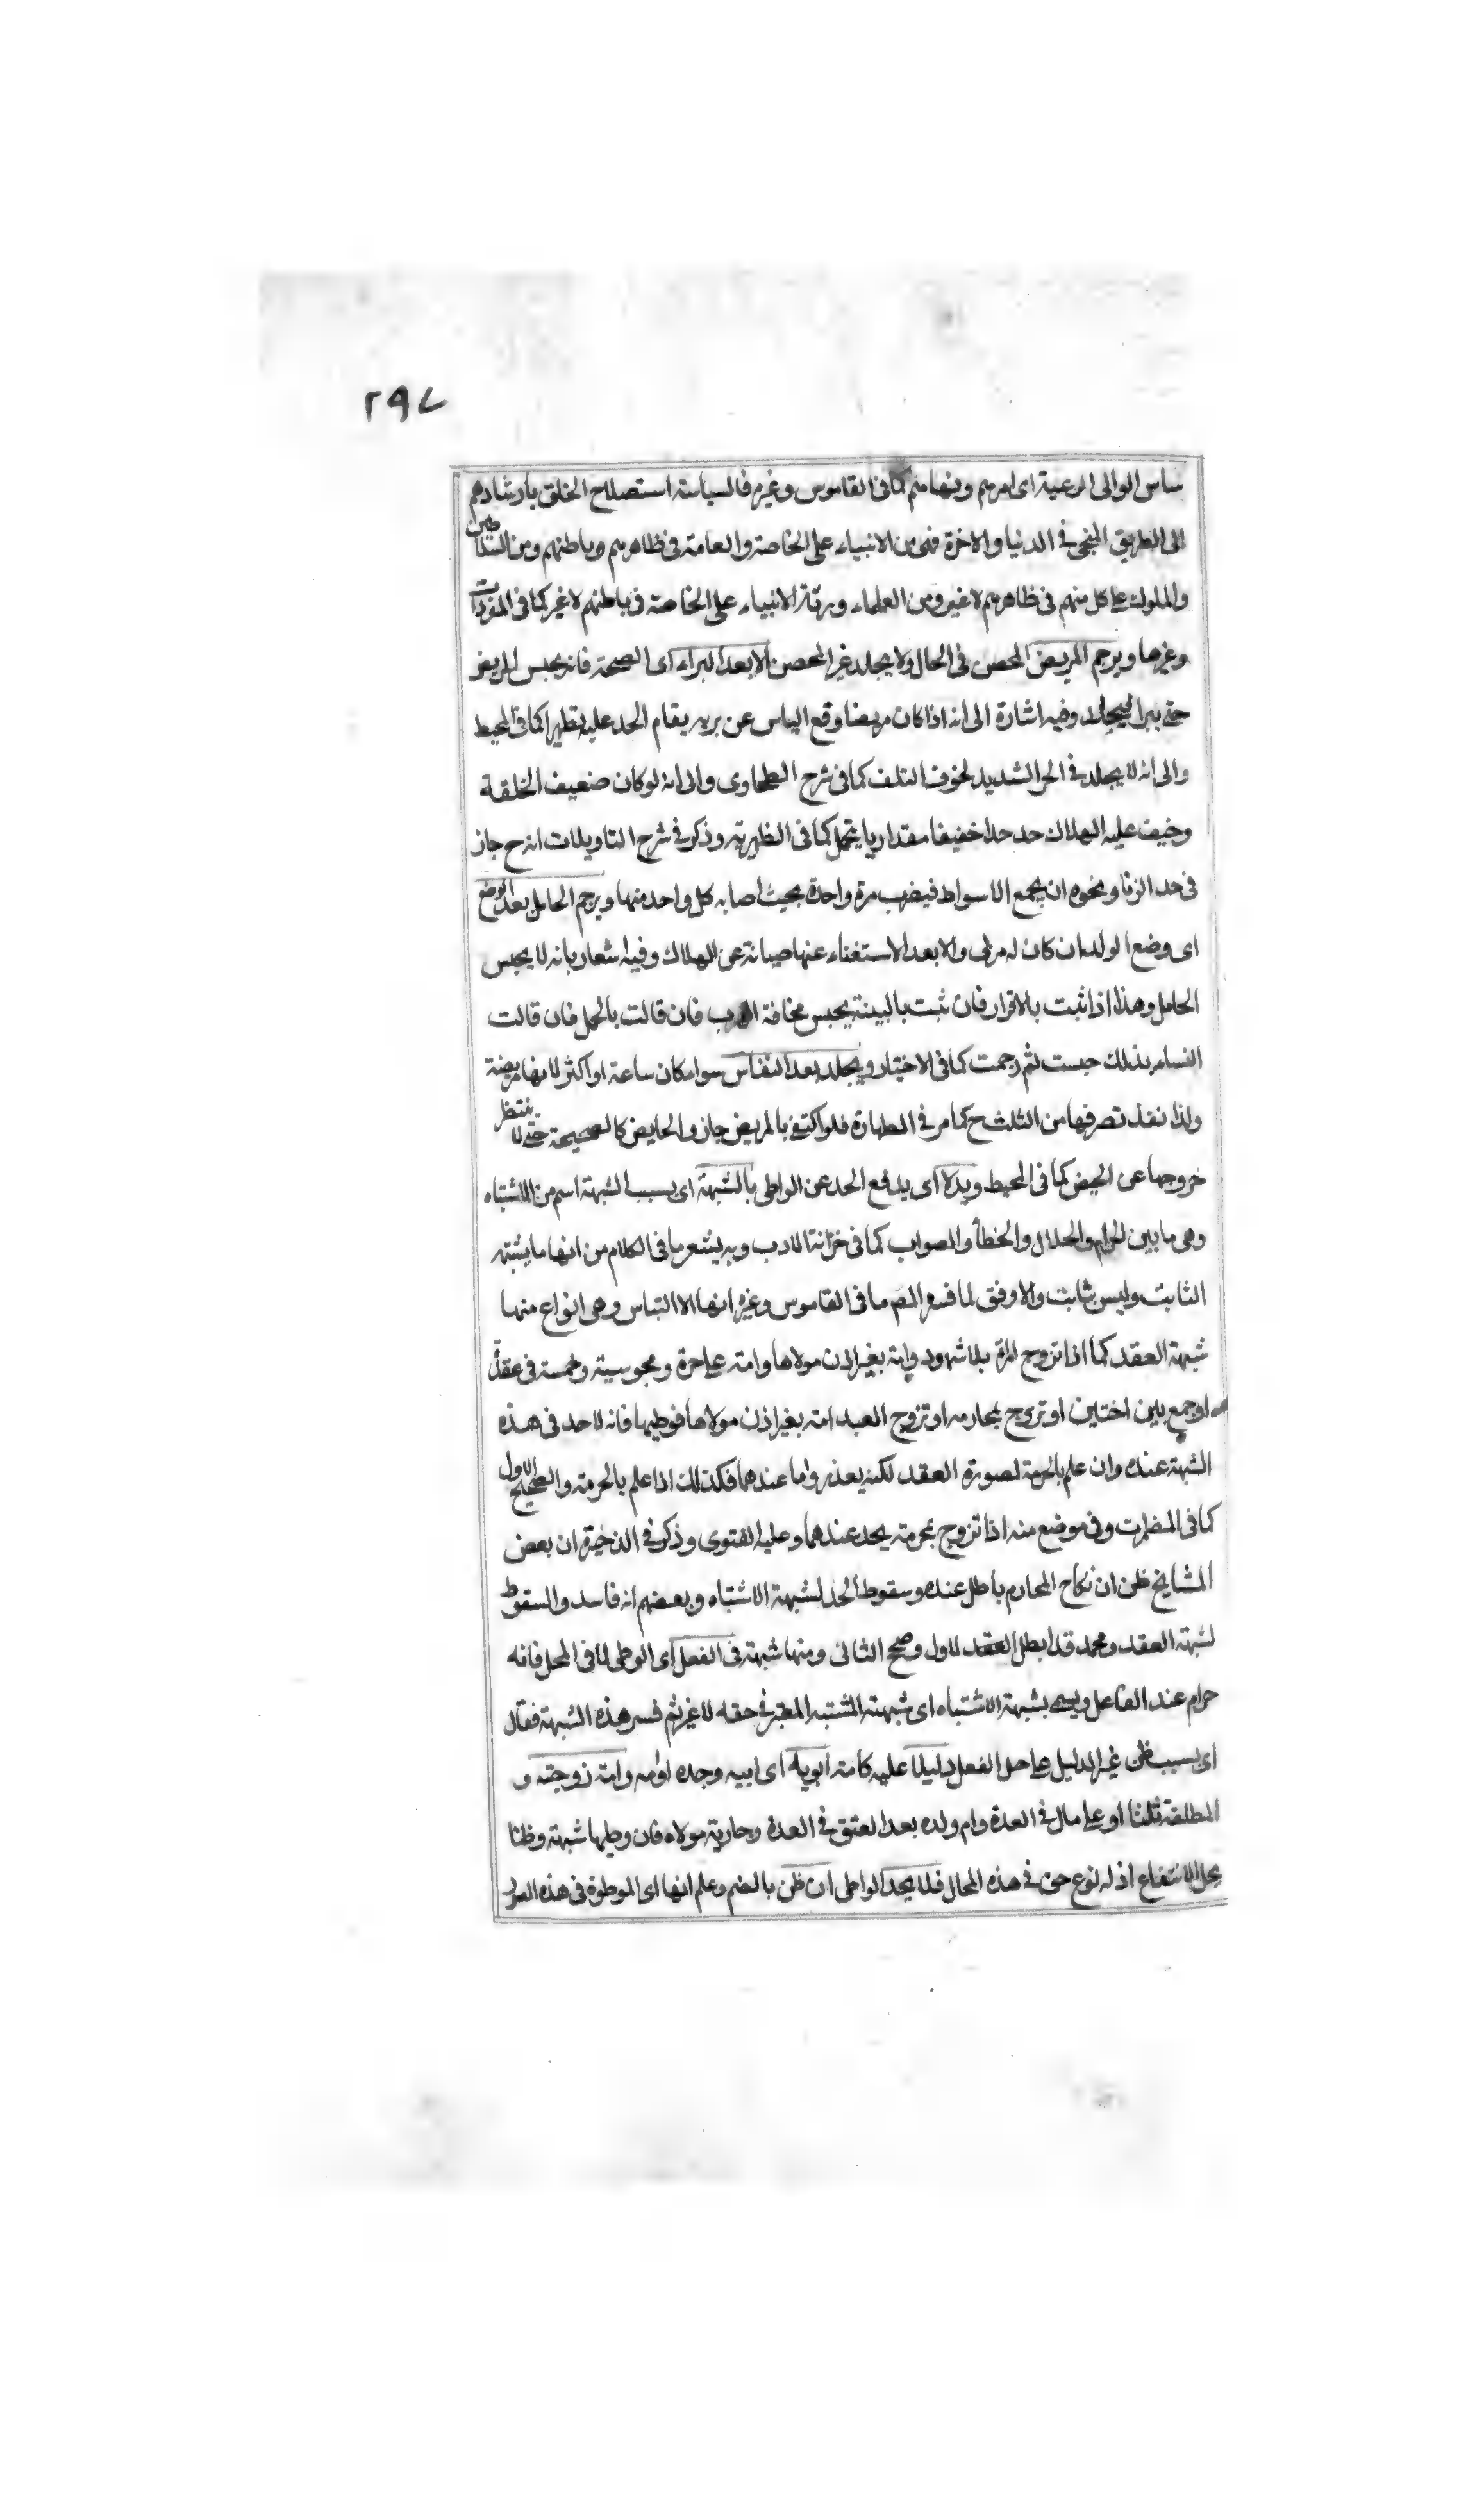 ٢٩٧
ساس الوالى الرعية اى امرهم ونهاهم كما فى القاموس وغيره فالسياسة استصلاح الخلق بارشادهم
الى الطريق المنجى فى الدنيا والاخرة فهى من الانبياء على الخاصة والعامة فى ظاهرهم وباطنهم ومن السلاطين
والملوك على كل منهم فى ظاهرهم لا غير ومن العلماء ورثة الانبياء على الخاصة فى باطنهم لا غير كما فى المفردات
وغيرها ويرجم المريض المحصن فى الحال ولا يجلد غير المحصن الا بعد البراء اى الصحة فانه يحبس المريض
حتى يبرا فيجلد وفيه اشارة الى انه اذا كان مريضا وقع الياس عن برئه يقام الحد عليه تطهيرا كما فى المحيط
والى انه لا يجلد فى الحر الشديد لخوف التلف كما فى شرح الطحاوى والى انه لو كان ضعيف الخلقة
وخيف عليه الهلاك حد حدا خفيفا مقدار ما يتحمل كما فى الظهيرية وذكر فى شرح التاويلات انه ح جاز
فى حد الزنا ونحوه ان يجمع الاسواط فيضرب مرة واحدة بحيث اصابه كل واحد منها ويرجم الحامل بعد الوضع
اى وضع الولد ان كان له مربى والا بعد الاستغناء عنها صيانة عن الهلاك وفيه اشعار بانه لا يحبس
الحامل وهذا اذا ثبت بالاقرار فان ثبت بالبينة يحبس مخافة الهرب فان قالت بالحمل فان قالت
النساء بذلك حبست ثم رجمت كما فى الاختيار ويجلد بعد النفاس سواء كان ساعة او اكثر لانها مريضة
ولذا نفذ تصرفها من الثلث ح كما مر فى الطهارة فلو اكتفى بالمريض جاز والحايض كالصحيحة حتى لا ينتظر
خروجها عن الحيض كما فى المحيط ويدرا اى يدفع الحد عن الواطى بالشبهة اى بسبب الشبهة اسم من الاشتباه
وهى ما بين الحرام والحلال والخطأ والصواب كما فى خزانة الادب وبه يشعر ما فى الكلام من انها ما يشبه
الثابت وليس بثابت والاوفق لما فسر المص ما فى القاموس وغيره انها الالتباس وهى انواع منها
شبهة العقد كما اذا تزوج امرأة بلا شهود وامة بغير اذن مولاها وامة على حرة ومجوسية وخمسة فى عقدة
او جمع بين اختين او تزوج بمحارمه او تزوج العبد امة بغير اذن مولاها فوطيها فانه لا حد فى هذه
الشبهة عنده وان علم بالحرمة لصورة العقد لكنه يعذر واما عندهما فكذلك الا اذا علم بالحرمة والصحيح الاول
كما فى المضمرات وفى موضع منه اذا تزوج بمحرمة يحد عندهما وعليه الفتوى وذكر فى الذخيرة ان بعض
المشايخ ظن ان نكاح المحارم باطل عنده وسقوط الحد لشبهة الاشتباه وبعضهم انه فاسد والسقوط
لشبهة العقد ومحمد قد ابطل العقد الاول وصحح الثانى ومنها شبهة فى الفعل اى الوطى لا فى المحل فانه
حرام عند الفاعل ويسمى بشبهة الاشتباه اى شبهة المشتبه المعتبر فى حقه لا غير ثم فسر هذه الشبهة فقال
اى بسبب ظن غير الدليل على حل الفعل دليلا عليه كامة ابويه اى ابيه وجده او امه وامة زوجته و
المطلقة ثلثا او على مال فى العدة وام ولده بعد العتق فى العدة وجارية مولاه فان وطيها شبهة وظنا
بحل الانتفاع اذ له نوع حق فى هذه المحال فلا يحد الواطى ان ظن بالضم وعلم انها اى الموطوة فى هذه الصور